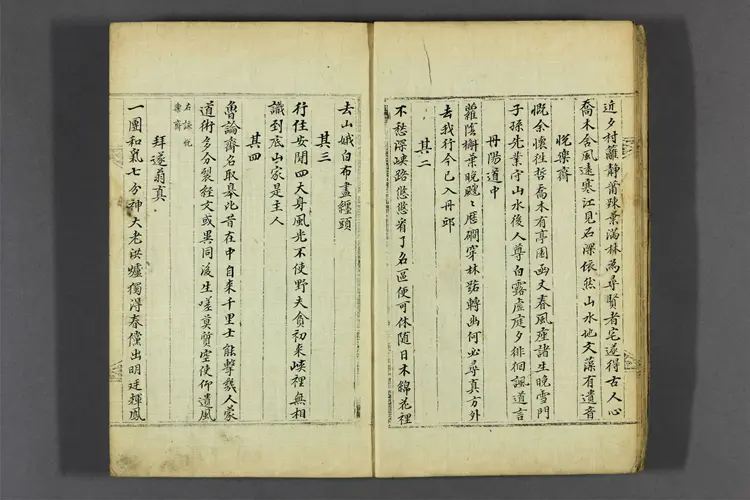 近夕村籬靜蕭踈景滿林為尋賢者宅遂得古人心
喬木含風遠寒江見石深依然山水地文藻有遺音
悅樂齋
慨余懷徃哲喬木有亭園函丈春風座諸生曉雪門
子孫先業守山水後人尊白露虛庭夕徘徊誦道言
丹陽道中
蘿陰槲葉晩颼颼歷磵穿林路轉幽何必尋真方外
去我行今已入丹邱
其二
不愁深峽路悠悠看了名區便可休隨日木綿花裡
去山娥白布盡纏頭
其三
行住安閒四大身風光不使野夫貪初來峽裡無相
識到底山家是主人
其四
魯論齋名取舉比昔在中自來千里士能擊幾人蒙
道術多分裂經文或異同後生嗟莫質空使仰遺風
右詠悅
樂齋
拜遂翁真
一團和氣七分神大老洪爐獨得春儘出明廷輝鳳